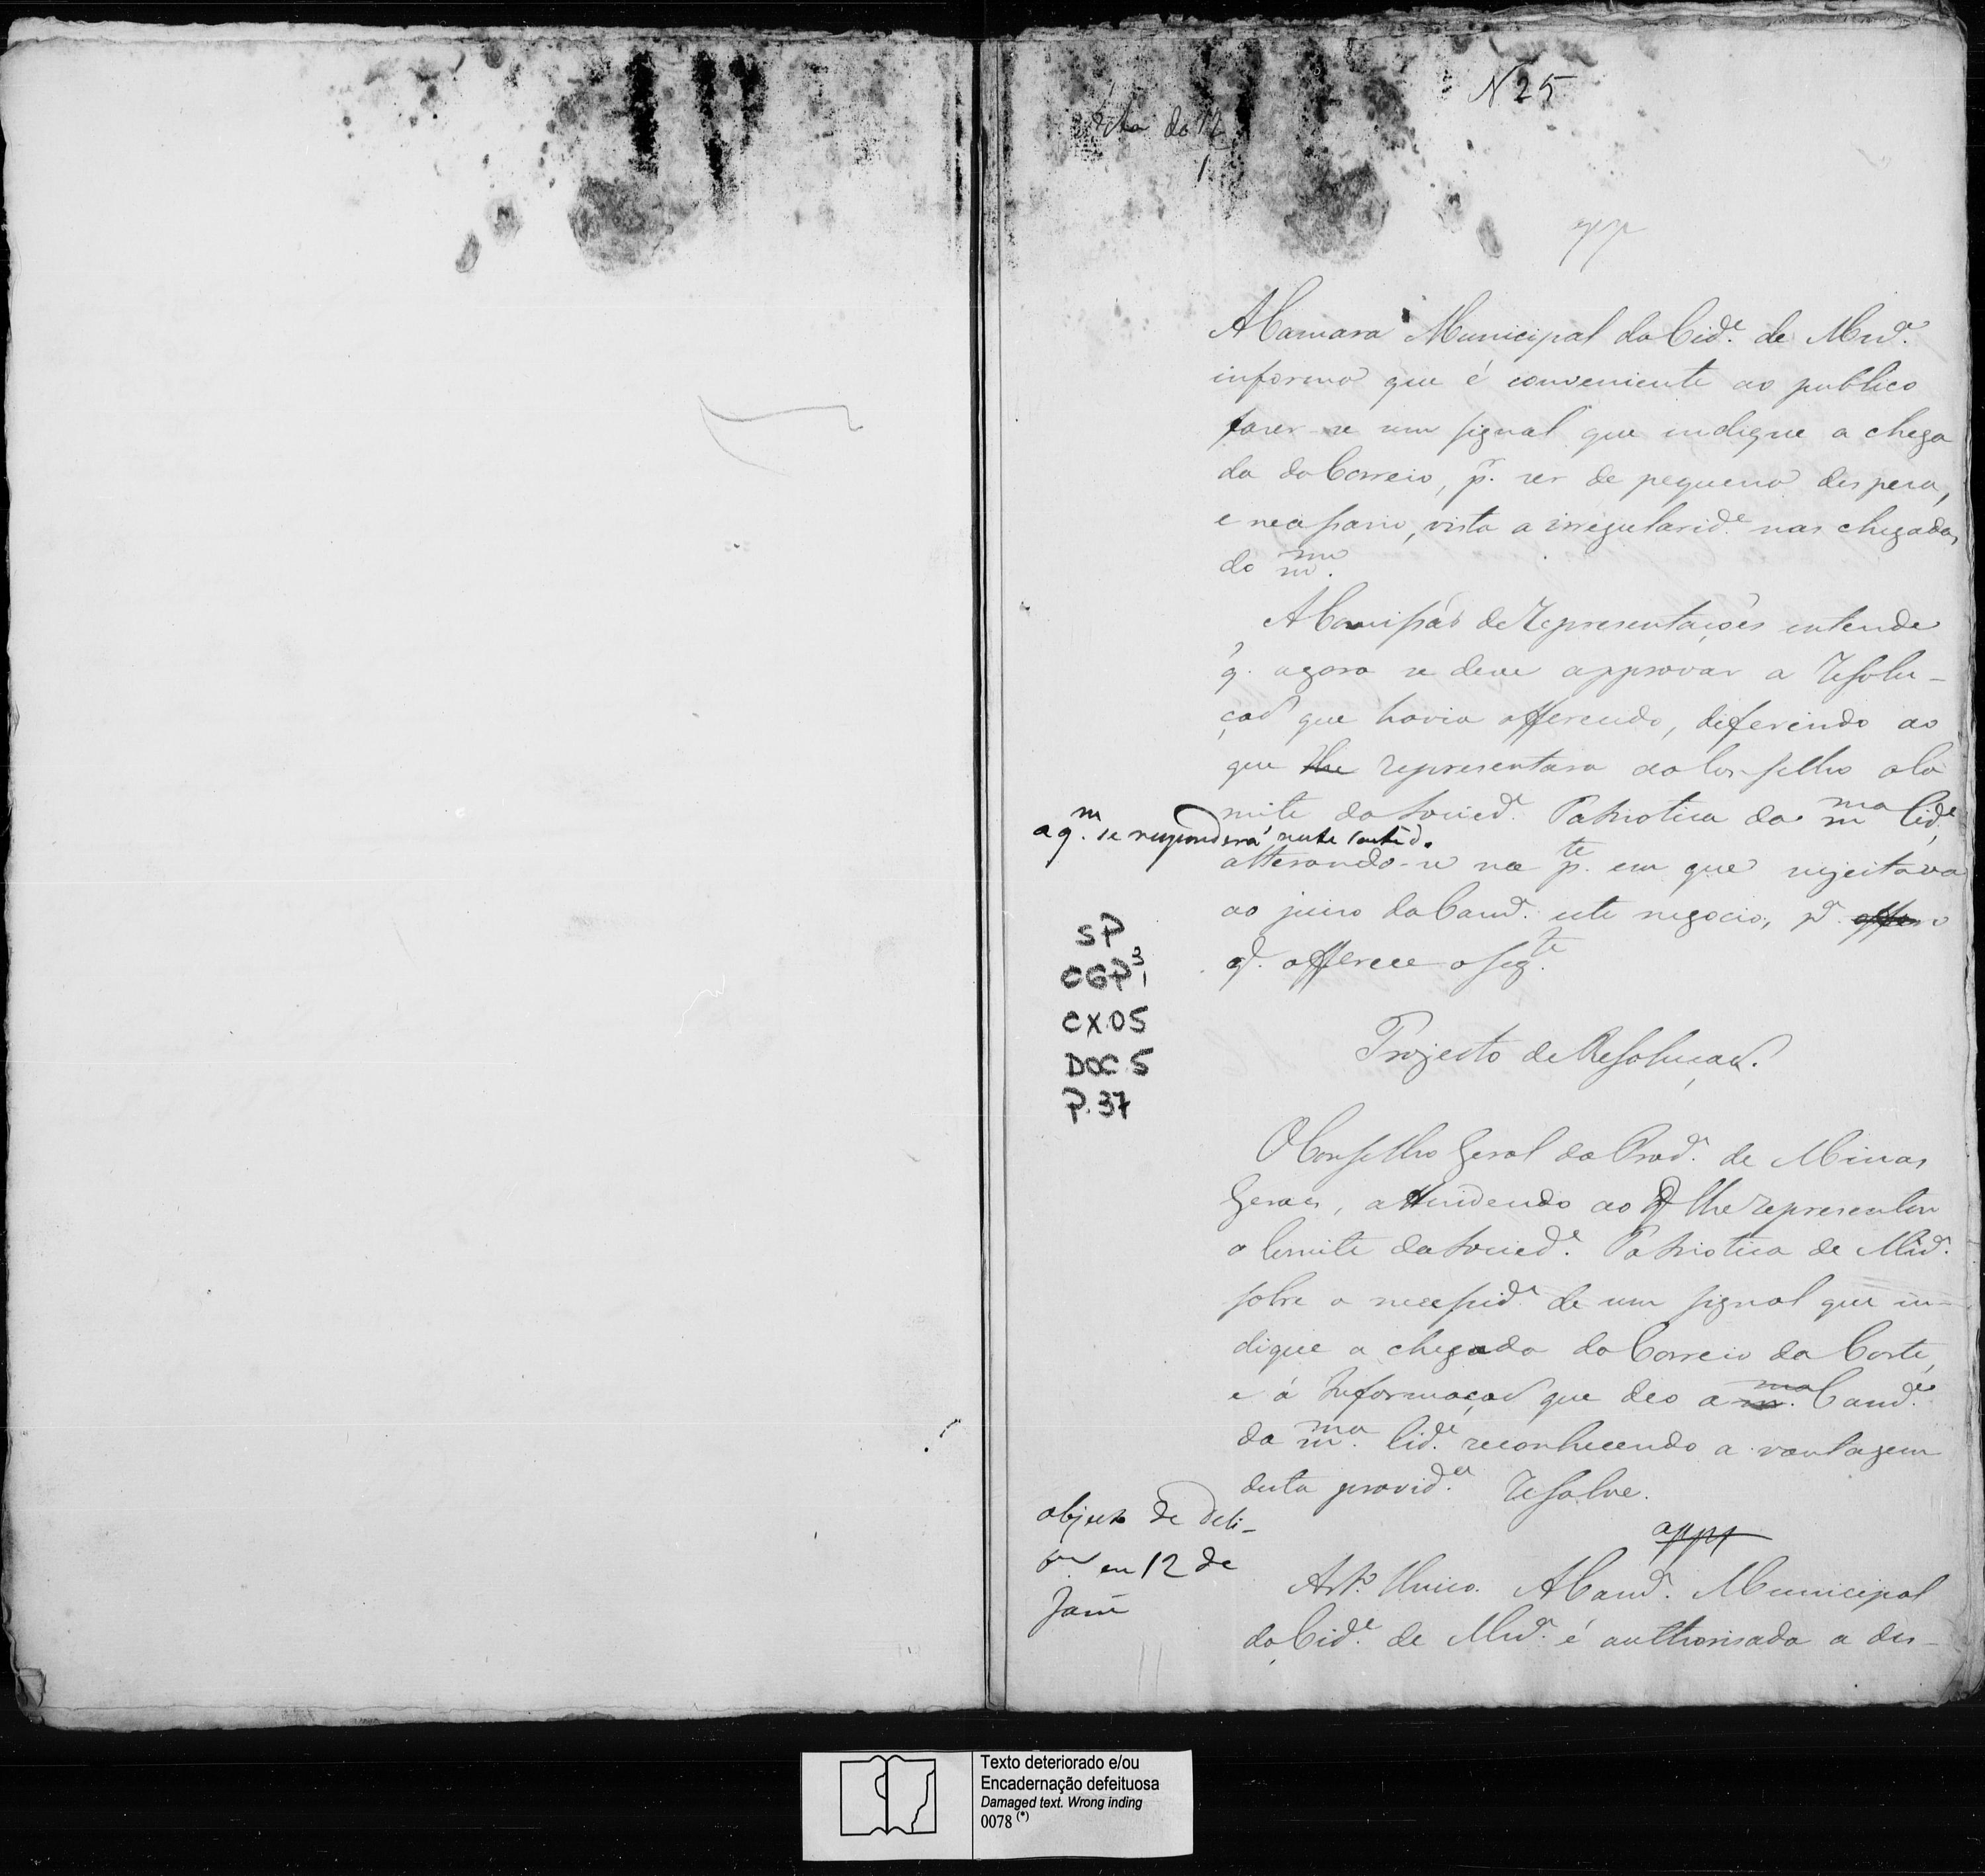 N 25
app
A Camara Municipal da Cid.e de Mar.a
informa que é conveniente ao publico
fazer-se um signal que indique a chega
da do Correio, p.r ser de pequena despesa,
e necessario, vista a irregularid.e nas chegadas
do m.mo
A Comissão de Representações entende
q. agora se deve approvar a Resolu-
ção que havia offerecido, deferindo ao
que lhe representara ao Conselho o Co
mite da Socied.e Patriotica da m.ma Cid.e
a q.m se responderá neste sentido
alterando-se na p.te em que sujeitava
ao juizo da Cam.a este negocio, p.a
q. offerece o seg.te
SP
CGP³1
CX.05
DOC 5
P.37
Projecto de Resolução.
O Conselho Geral da Prov.a de Minas
Geraes, attendendo ao q lhe representou
o Comite da Socied.e Patriotica de Mar.a
sobre a necessid.e de um signal que in-
dique a chegada do Correio da Corte,
e á Informação que deo a m.ma Cam.a
da m.ma Cid.e reconhecendo a vantagem
desta provid.a Resolve.
app
objecto de deli-
em 12 de
Jan
Art.o Unico. A Cam.a Municipal
da Cid.e de Mar.a é authorisada a des-
Texto deteriorado e/ou
Encadernação defeituosa
Damaged text. Wrong inding
0078 (*)